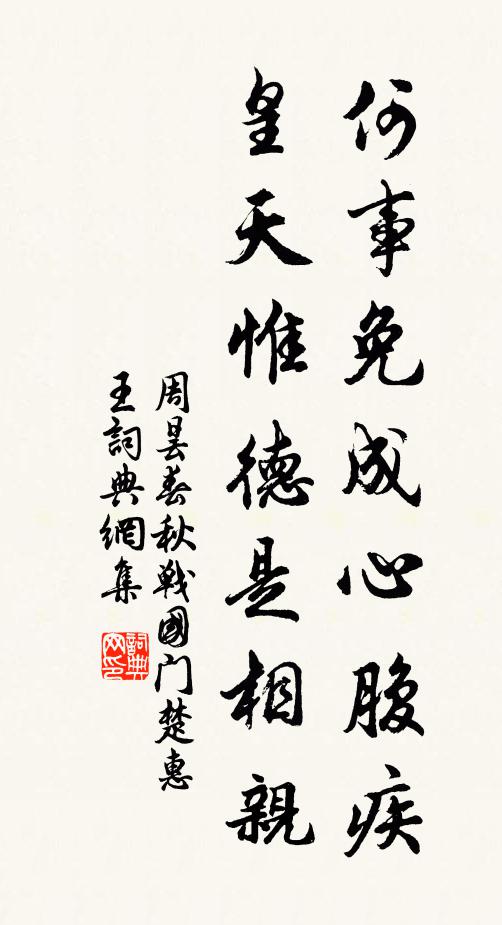 何事免成心腹疾
皇天惟德是相親
周曇春秋戰國门楚惠
王詞典網集
詞典网印